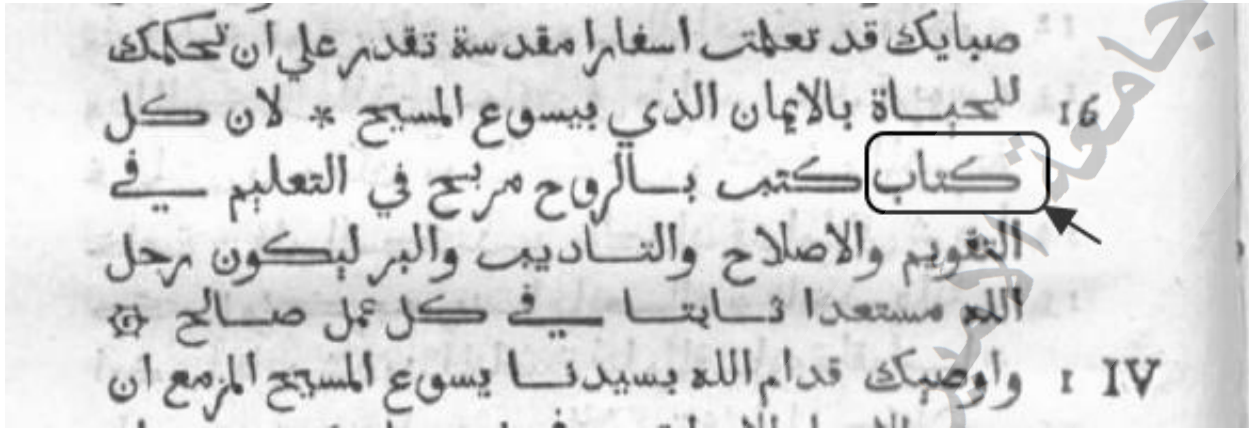 صبايك قد تعلمت اسفارا مقدسة تقدر علي ان تحكمك
16 للحياة بالايمان الذي بيسوع المسيح * لان كل
كتاب كتب بالروح مربح في التعليم في
التقويم والاصلاح والتاديب والبر ليكون رجل
الله مستعدا ثابتا في كل عمل صالح
1 IV واوصيك قدام الله بسيدنا يسوع المسيح المزمع ان
جامعة